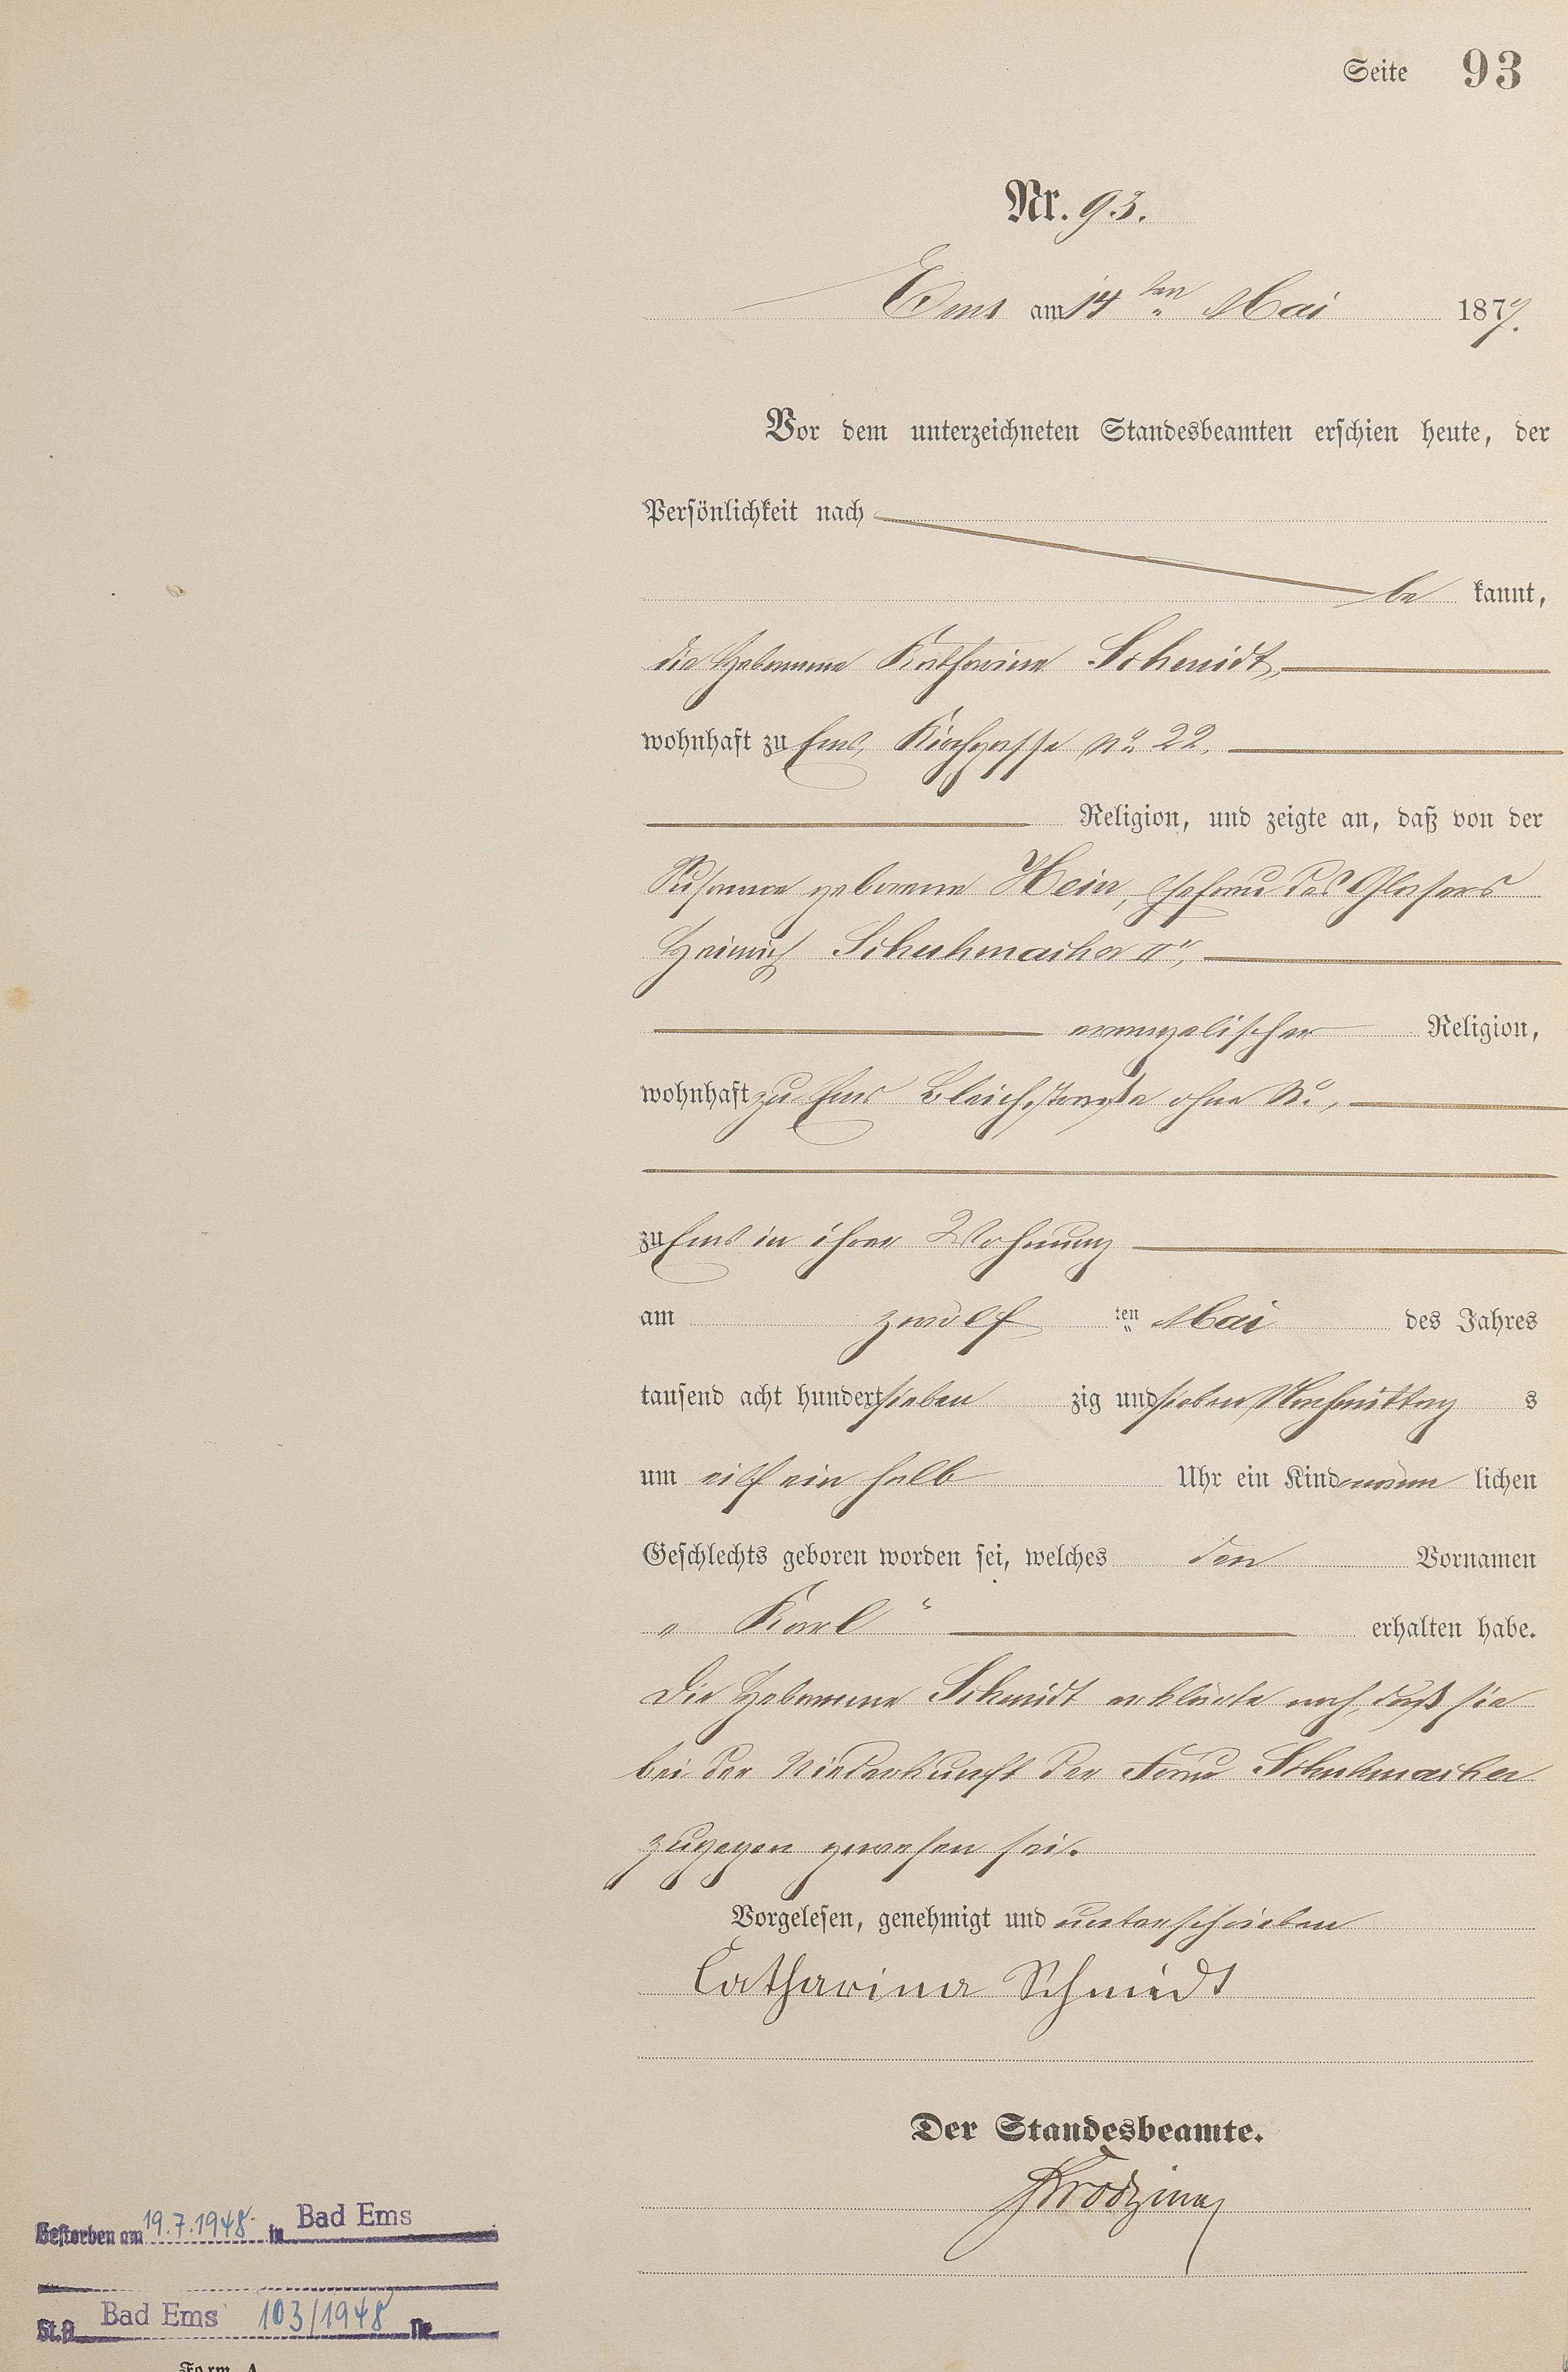 Seite 93
Nr. 93.
Ems am 14ten Mai 1877.
Vor dem unterzeichneten Standesbeamten erschien heute, der
Persönlichkeit nach
be kannt,
die Hebamme Katharina Schmidt,
wohnhaft zu Ems, Kirchgasse No. 22.
Religion, und zeigte an, daß von der
Susanna geborene Hein, Ehefrau des Glasers
Heinrich Schuhmacher IIr,
evangelischer Religion,
wohnhaft zu Ems Bleichstraße ohne No.,
zu Ems in ihrer Wohnung
am zwölf ten Mai des Jahres
tausend acht hundert sieben zig und sieben Nachmittag s
um eilf ein halb Uhr ein Kind männ lichen
Geschlechts geboren worden sei, welches den Vornamen
„ Karl “ erhalten habe.
Die Hebamme Schmidt erklärte noch, daß sie
bei der Niederkunft der Frau Schuhmacher
zugegen gewesen sei.
Vorgelesen, genehmigt und unterschrieben
Catharina Schmidt
Der Standesbeamte.
Gestorben am 19.7.1948. in Bad Ems
St.A. Bad Ems 103/1948 Nr.
Form. A